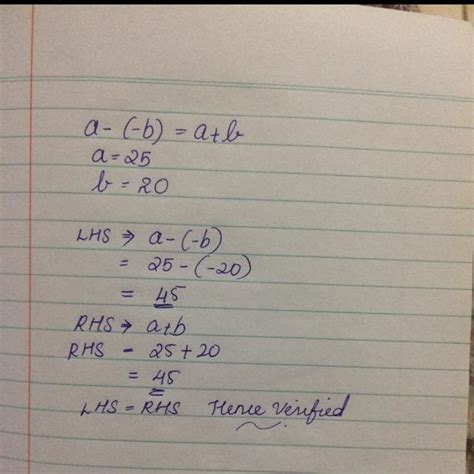 a - (-b) = a+b
a = 25
b = 20
LHS ⇒ a - (-b)
= 25 - (-20)
= 45
RHS → a+b
RHS = 25 + 20
= 45
LHS = RHS Hence Verified